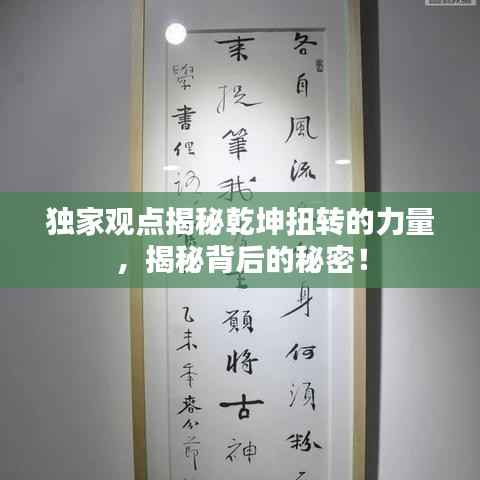 各自風流身何須粉
来捉筆我願將古神
學書俚語
乙未年春分節
独家观点揭秘乾坤扭转的力量
，揭秘背后的秘密！